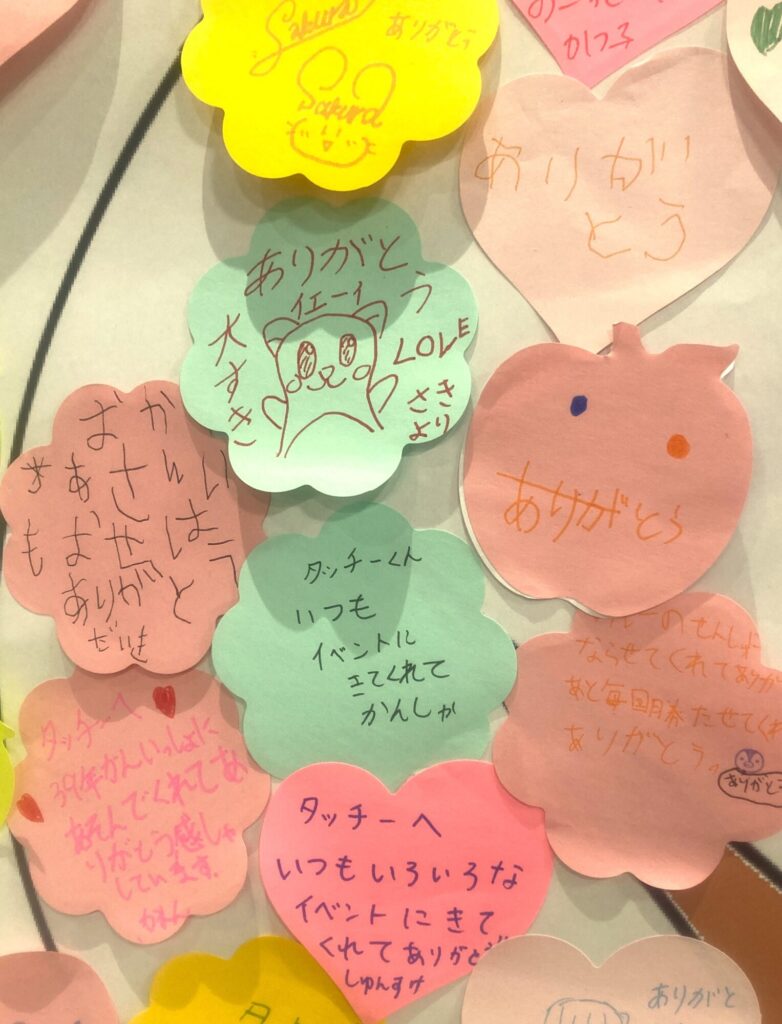 Sakura
ありがとう
Sakura
かつ子
ありが
とう
ありがとう
イエーイ
大すき
LOVE
さき
より
ありがとう
おか
あさん
ありがと
だいき
タッチーくん
いつも
イベントに
きてくれて
かんしゃ
ならせてくれてありが
あと毎回
たせてくれ
ありがとう。
ありがとう
タッチーへ
39年かんいっしょに
あそんでくれてあ
りがとう感しゃ
しています。
かれん
タッチーへ
いつもいろいろな
イベントにきて
くれてありがとう
しゅんすけ
ありがと